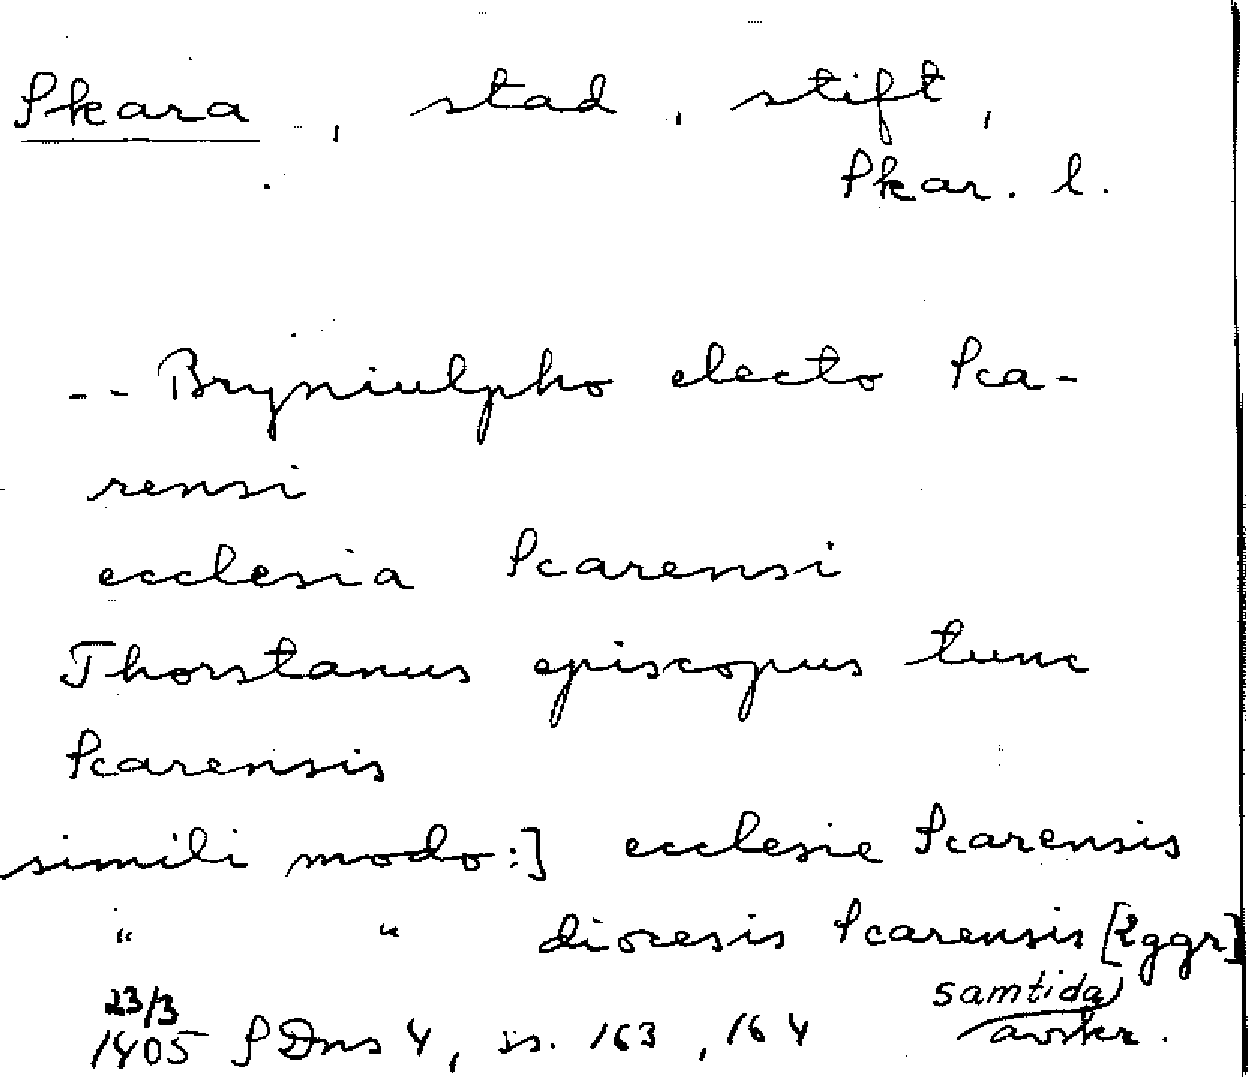 Skara, stad, stift,
Skar. l.
-- Bryniulpho electo Sca-
rensi
ecclesia Scarensi
Thorstanus episcopus tunc
Scarensis
simili modo:] ecclesie Scarensis
" " diocesis Scarensis [2ggr]
23/3 samtida
1405 SDns 4, ss. 163, 164 avskr.